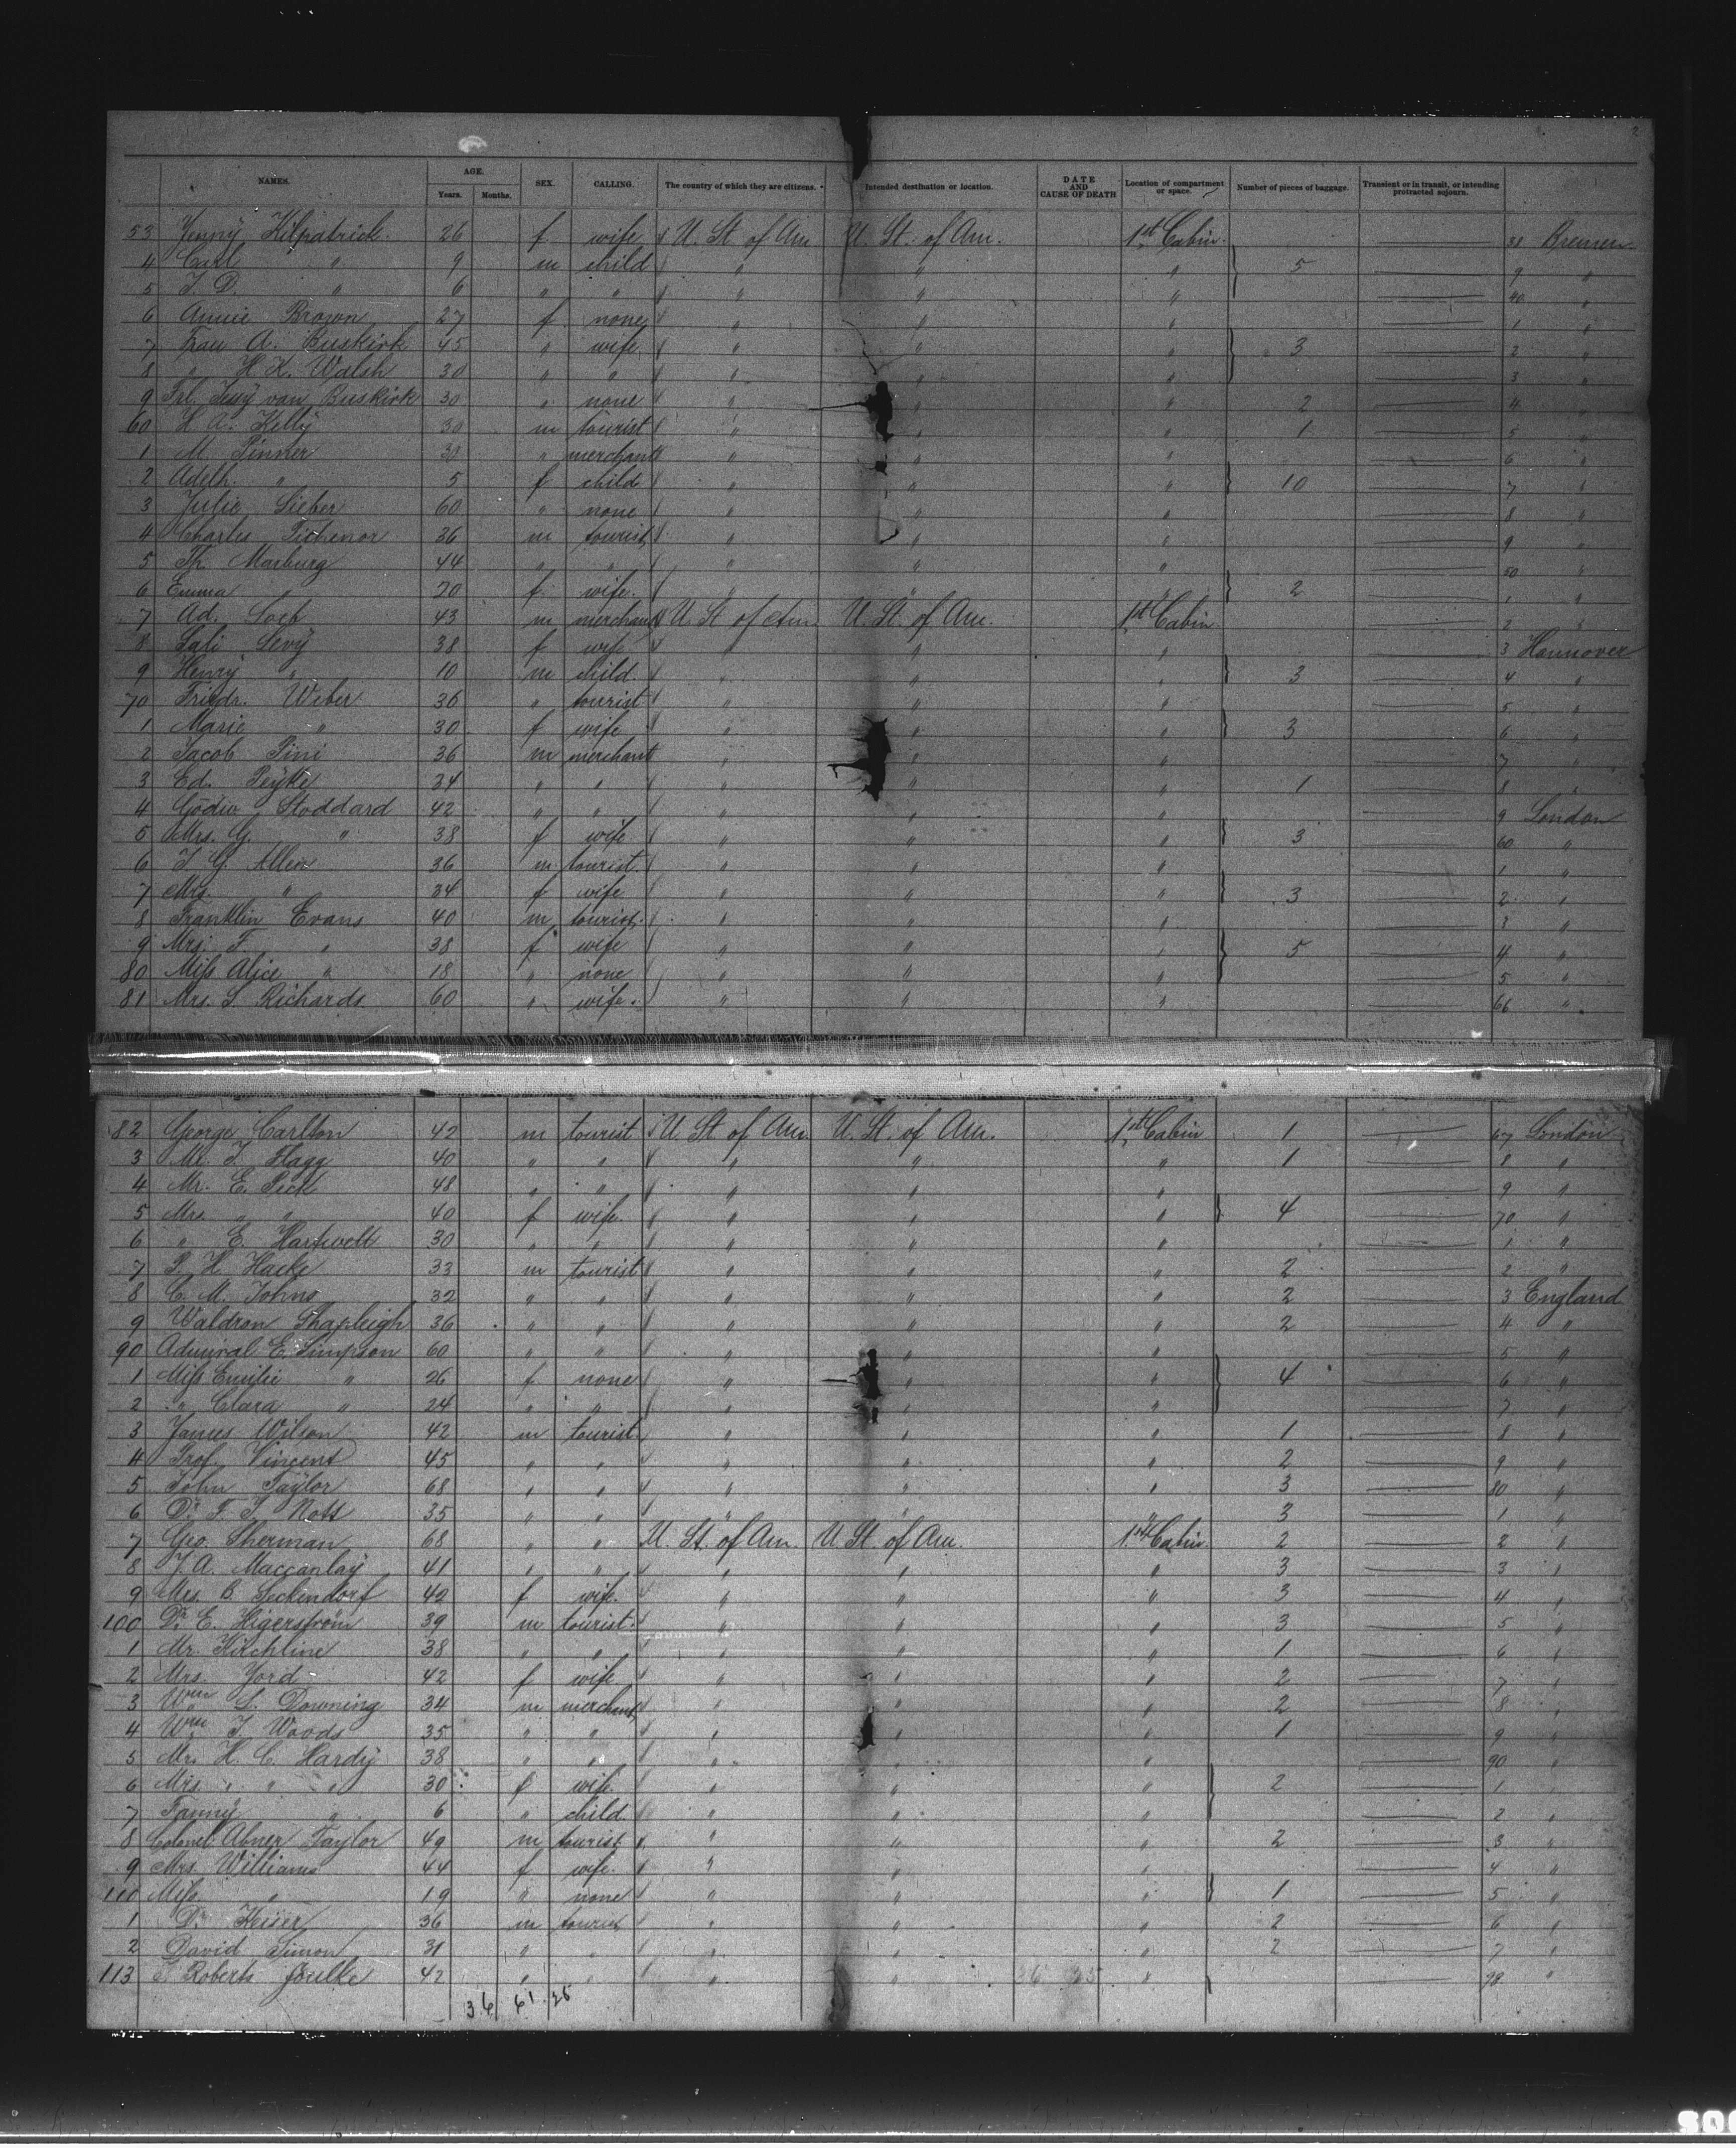 2
NAMES. AGE. Years. Months. SEX. CALLING. The country of which they are citizens. Intended destination or location. DATE AND CAUSE OF DEATH Location of compartment or space. Number of pieces of baggage. Transient or in transit, or intending protracted sojourn.
53 Jenny Kilpatrick 26 f wife U. St of Am U. St. of Am. 1st Cabin 38 Bremen
4 Carl " 9 m child " " " 5 9 "
5 J. D. " 6 " " " " " 40 "
6 Annie Brown 27 f none " " " 1 "
7 Frau A. Buskirk 45 " wife " " " 3 2 "
8 " H. K. Walsh 30 " " " " " 3 "
9 Frl. Jenny van Buskirk 30 " none " " " 2 4 "
60 H. A. Kelly 30 m tourist " " " 1 5 "
1 M. Pinner 30 " merchant " " " 6 "
2 Adelh. " 5 f child " " " 10 7 "
3 Julie Lieber 60 " none " " " 8 "
4 Charles Tichenor 36 m tourist " " " 9 "
5 Th. Marburg 44 " " " " " 50 "
6 Emma " f wife " " " 2 1 "
7 Ad. Loeb 43 m merchant U. St of Am. U. St. of Am. 1st Cabin 2 "
8 Sali Levy 38 f wife " " " 3 Hannover
9 Henry " 10 m child " " " 3 4 "
70 Friedr. Weber 36 " tourist " " " 5 "
1 Marie " 30 f wife " " " 3 6 "
2 Jacob Pini 36 m merchant " " " 7 "
3 Ed. 34 " " " " " 1 8 "
4 Stoddard 42 " " " " " 9 London
5 Mrs. G. " 38 f wife " " " 3 60 "
6 J. G. Allen 36 m tourist " " " 1 "
7 Mrs. " 34 f wife " " " 3 2 "
8 Franklin Evans 40 m tourist " " " 3 "
9 Mrs. F. " 38 f wife " " " 5 4 "
80 Miss Alice " 18 " none " " " 5 "
81 Mrs. S. Richards 60 " wife " " " 66 "
82 George Carlton 42 m tourist U. St of Am. U. St. of Am. 1st Cabin 1 67 London
3 Mr. J. Flagg 40 " " " " " 1 8 "
4 Mr. E. Peck 48 " " " " " 9 "
5 Mrs. " " 40 f wife " " " 4 70 "
6 " E. Hartwell 30 " " " " " 1 "
7 P. H. Hacke 33 m tourist " " " 2 2 "
8 C. M. Johns 32 " " " " " 2 3 England
9 Waldron Shapleigh 36 " " " " " 2 4 "
90 Admiral E. Simpson 60 " " " " " 5 "
1 Miss Emilie " 26 f none " " " 4 6 "
2 " Clara " 24 " " " " " 7 "
3 James Wilson 42 m tourist " " " 1 8 "
4 Prof. Vincent 45 " " " " " 2 9 "
5 John Taylor 68 " " " " " 3 80 "
6 Dr. F. J. Nott 35 " " " " " 3 1 "
7 Geo. Sherman 68 " " U. St. of Am. U. St. of Am. 1st Cabin 2 2 "
8 J. A. Maccanlay 41 " " " " " 3 3 "
9 Mrs. B. Seckendorf 42 f wife " " " 3 4 "
100 Dr. E. Higerström 39 m tourist " " " 3 5 "
1 Mr. Kirchline 38 " " " " " 1 6 "
2 Mrs. Yord 42 f wife " " " 2 7 "
3 Wm S. Downing 34 m merchant " " " 2 8 "
4 Wm J. Woods 35 " " " " " 1 9 "
5 Mr. H. C. Hardy 38 " " " " " 90 "
6 Mrs. " " " 30 f wife " " " 2 1 "
7 Fanny " 6 " child " " " 2 "
8 Colonel Abner Taylor 49 m tourist " " " 2 3 "
9 Mrs. Williams 44 f wife " " " 4 "
110 Miss " 19 " none " " " 1 5 "
1 Dr. Keiser 36 m tourist " " " 2 6 "
2 David Simon 31 " " " " " 2 7 "
113 Roberts Foulke 42 " " " " " 98 "
36 61 25